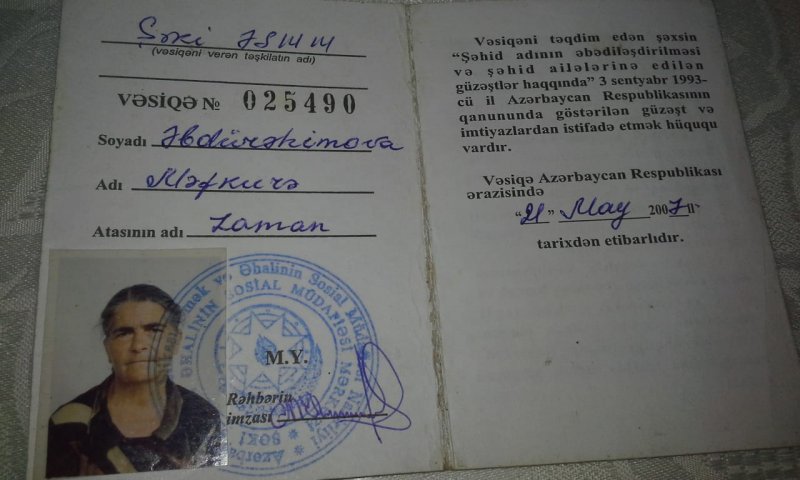 Şəki ƏSMM
(vəsiqəni verən təşkilatın adı)
VƏSİQƏ № 025490
Soyadı Əbdürəhimova
Adı Məfkurə
Atasının adı Zaman
M.Y.
Rəhbərin
imzası
ƏHALİNİN SOSİAL MÜDAFİƏSİ MƏRKƏZİ
ŞƏKİ
Vəsiqəni təqdim edən şəxsin
“Şəhid adının əbədiləşdirilməsi
və şəhid ailələrinə edilən
güzəştlər haqqında” 3 sentyabr 1993-
cü il Azərbaycan Respublikasının
qanununda göstərilən güzəşt və
imtiyazlardan istifadə etmək hüququ
vardır.
Vəsiqə Azərbaycan Respublikası
ərazisində
“21” May 2007 il
tarixdən etibarlıdır.